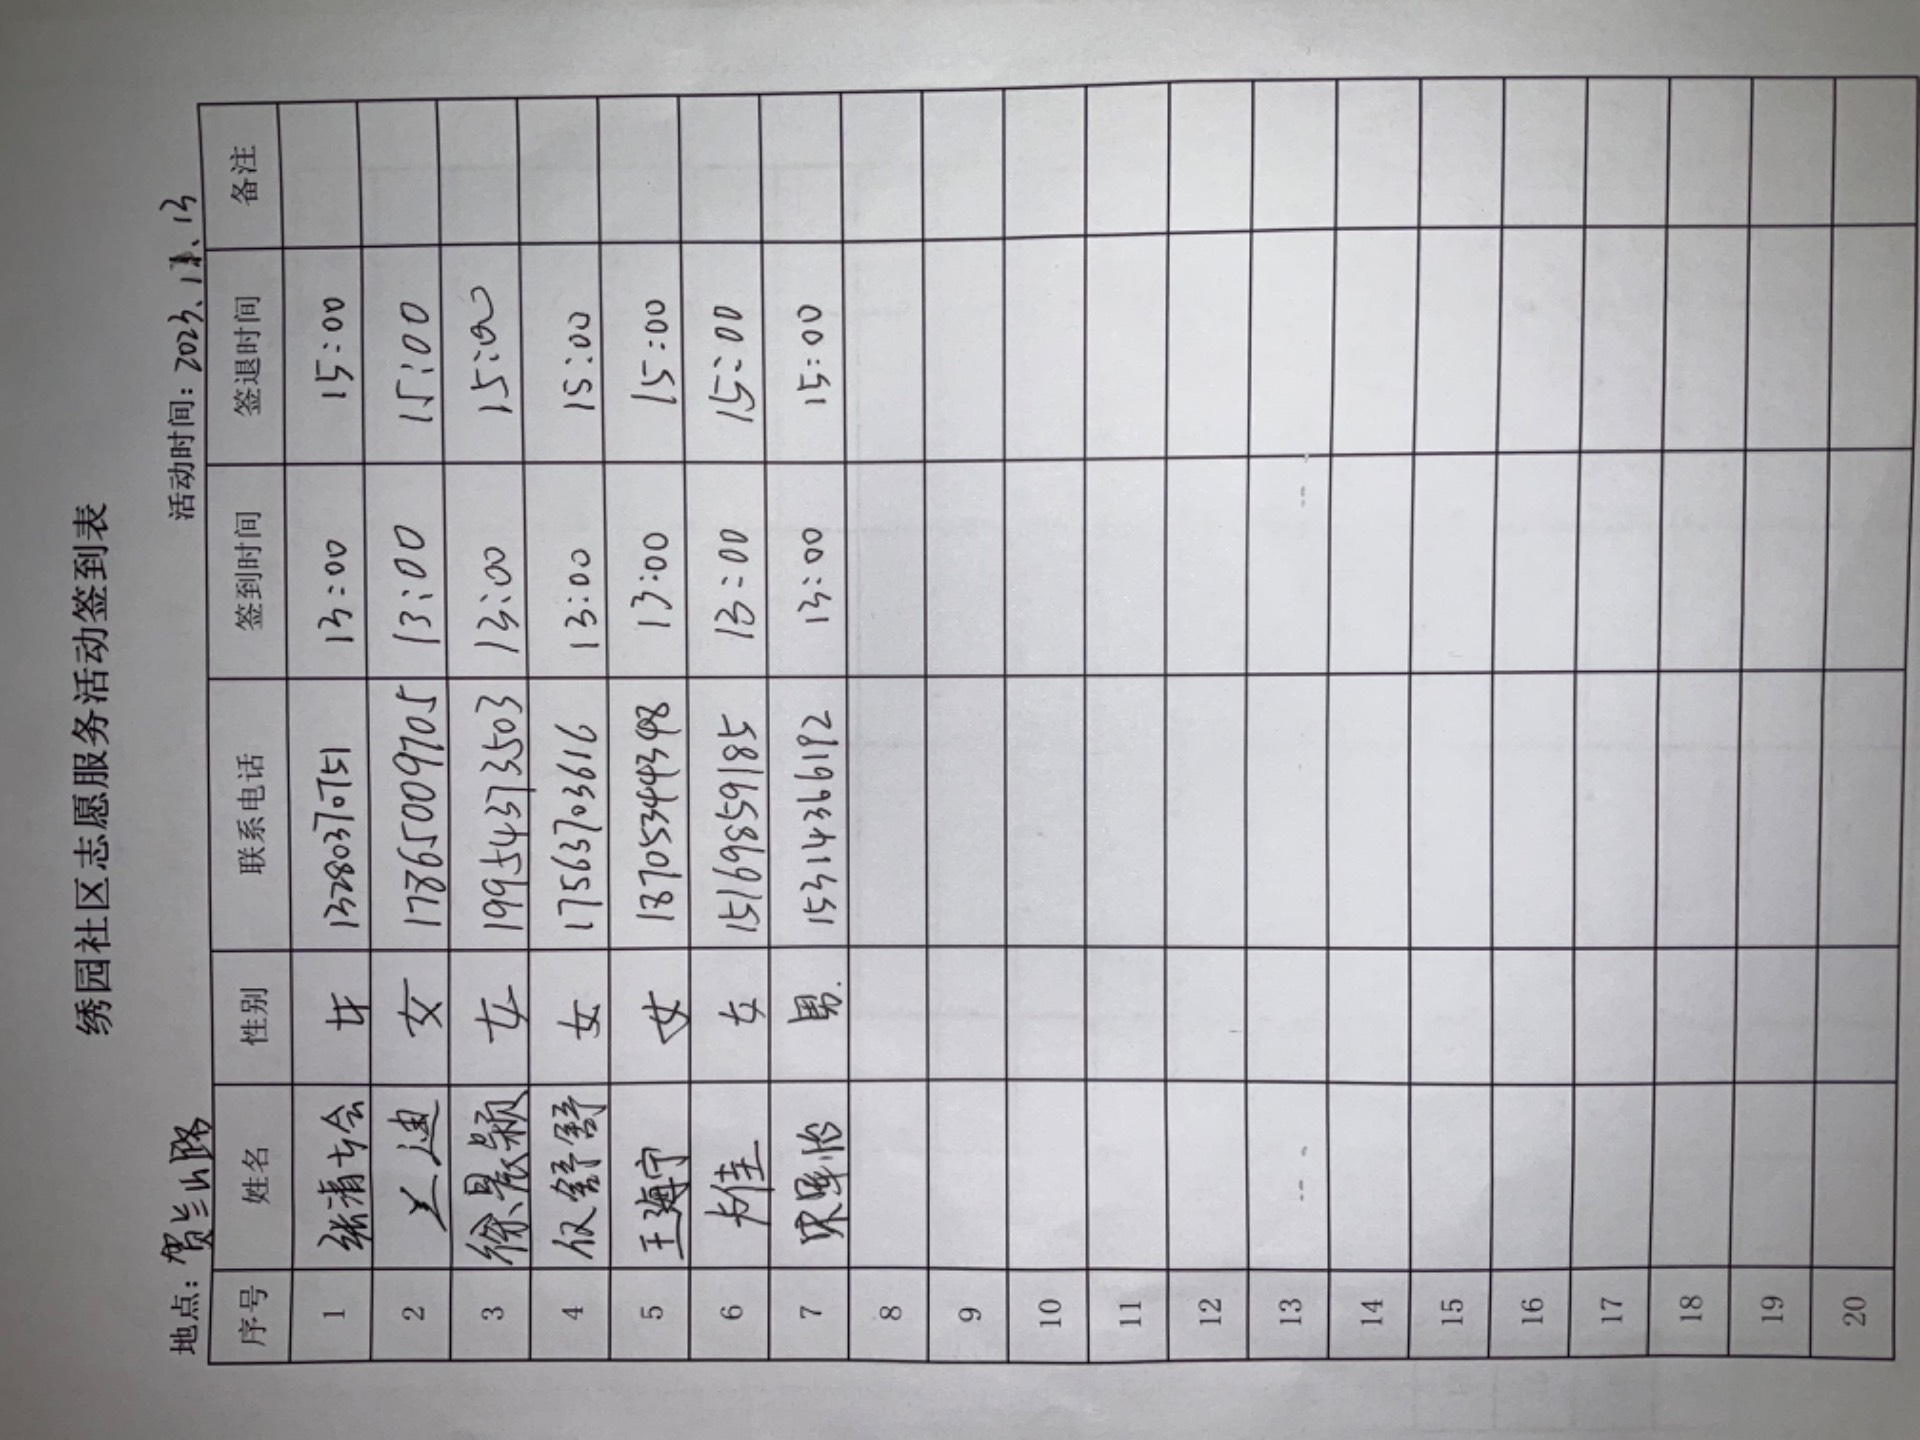 绣园社区志愿服务活动签到表
地点：贺兰山路 活动时间：2023、1、13
序号 姓名 性别 联系电话 签到时间 签退时间 备注
1 女 13280370751 13:00 15:00
2 兰迪 女 17865009705 13:00 15:00
3 徐晨颖 女 19954373503 13:00 15:00
4 仪舒舒 女 17563703616 13:00 15:00
5 王海宁 女 18705344398 13:00 15:00
6 卢佳 女 15169859185 13:00 15:00
7 宋晖怡 男 15314366192 13:00 15:00
8
9
10
11
12
13
14
15
16
17
18
19
20